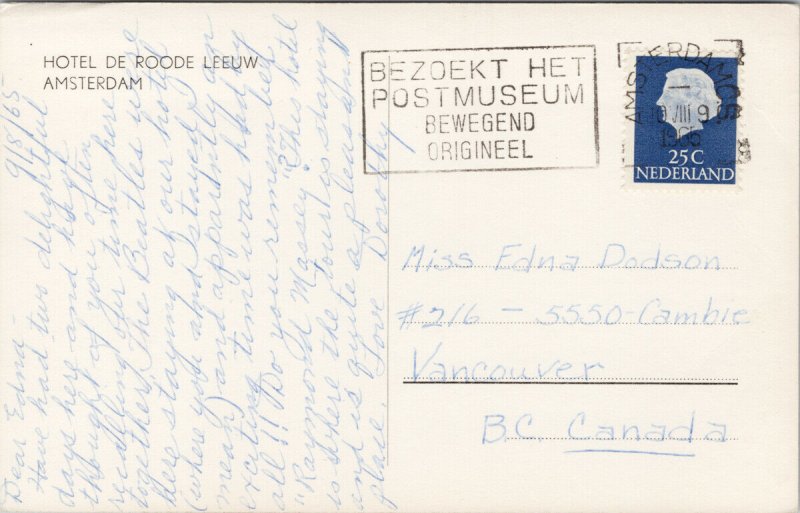 HOTEL DE ROODE LEEUW
AMSTERDAM
BEZOEKT HET
POSTMUSEUM
BEWEGEND
ORIGINEEL
AMSTERDAM CS
10 VIII 9
1965
25C
NEDERLAND
9/8/65
Dear Edna -
Have had two delightful
days here and have
thought of you often
recalling our time here
together. The Beatles were
here staying at our hotel
(where you and I stayed I
mean) and apparently an
exciting time was had by
all!! Do you remember
"Raymond Massey" "This hotel
is where the tour is staying
and is quite a pleasant
place. Love Dorothy
Miss Edna Dodson
#216 - 5550 - Cambie
Vancouver
B.C. Canada